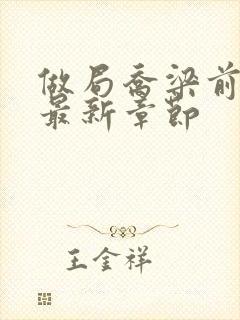 做局乔梁前
最新章节
王金祥